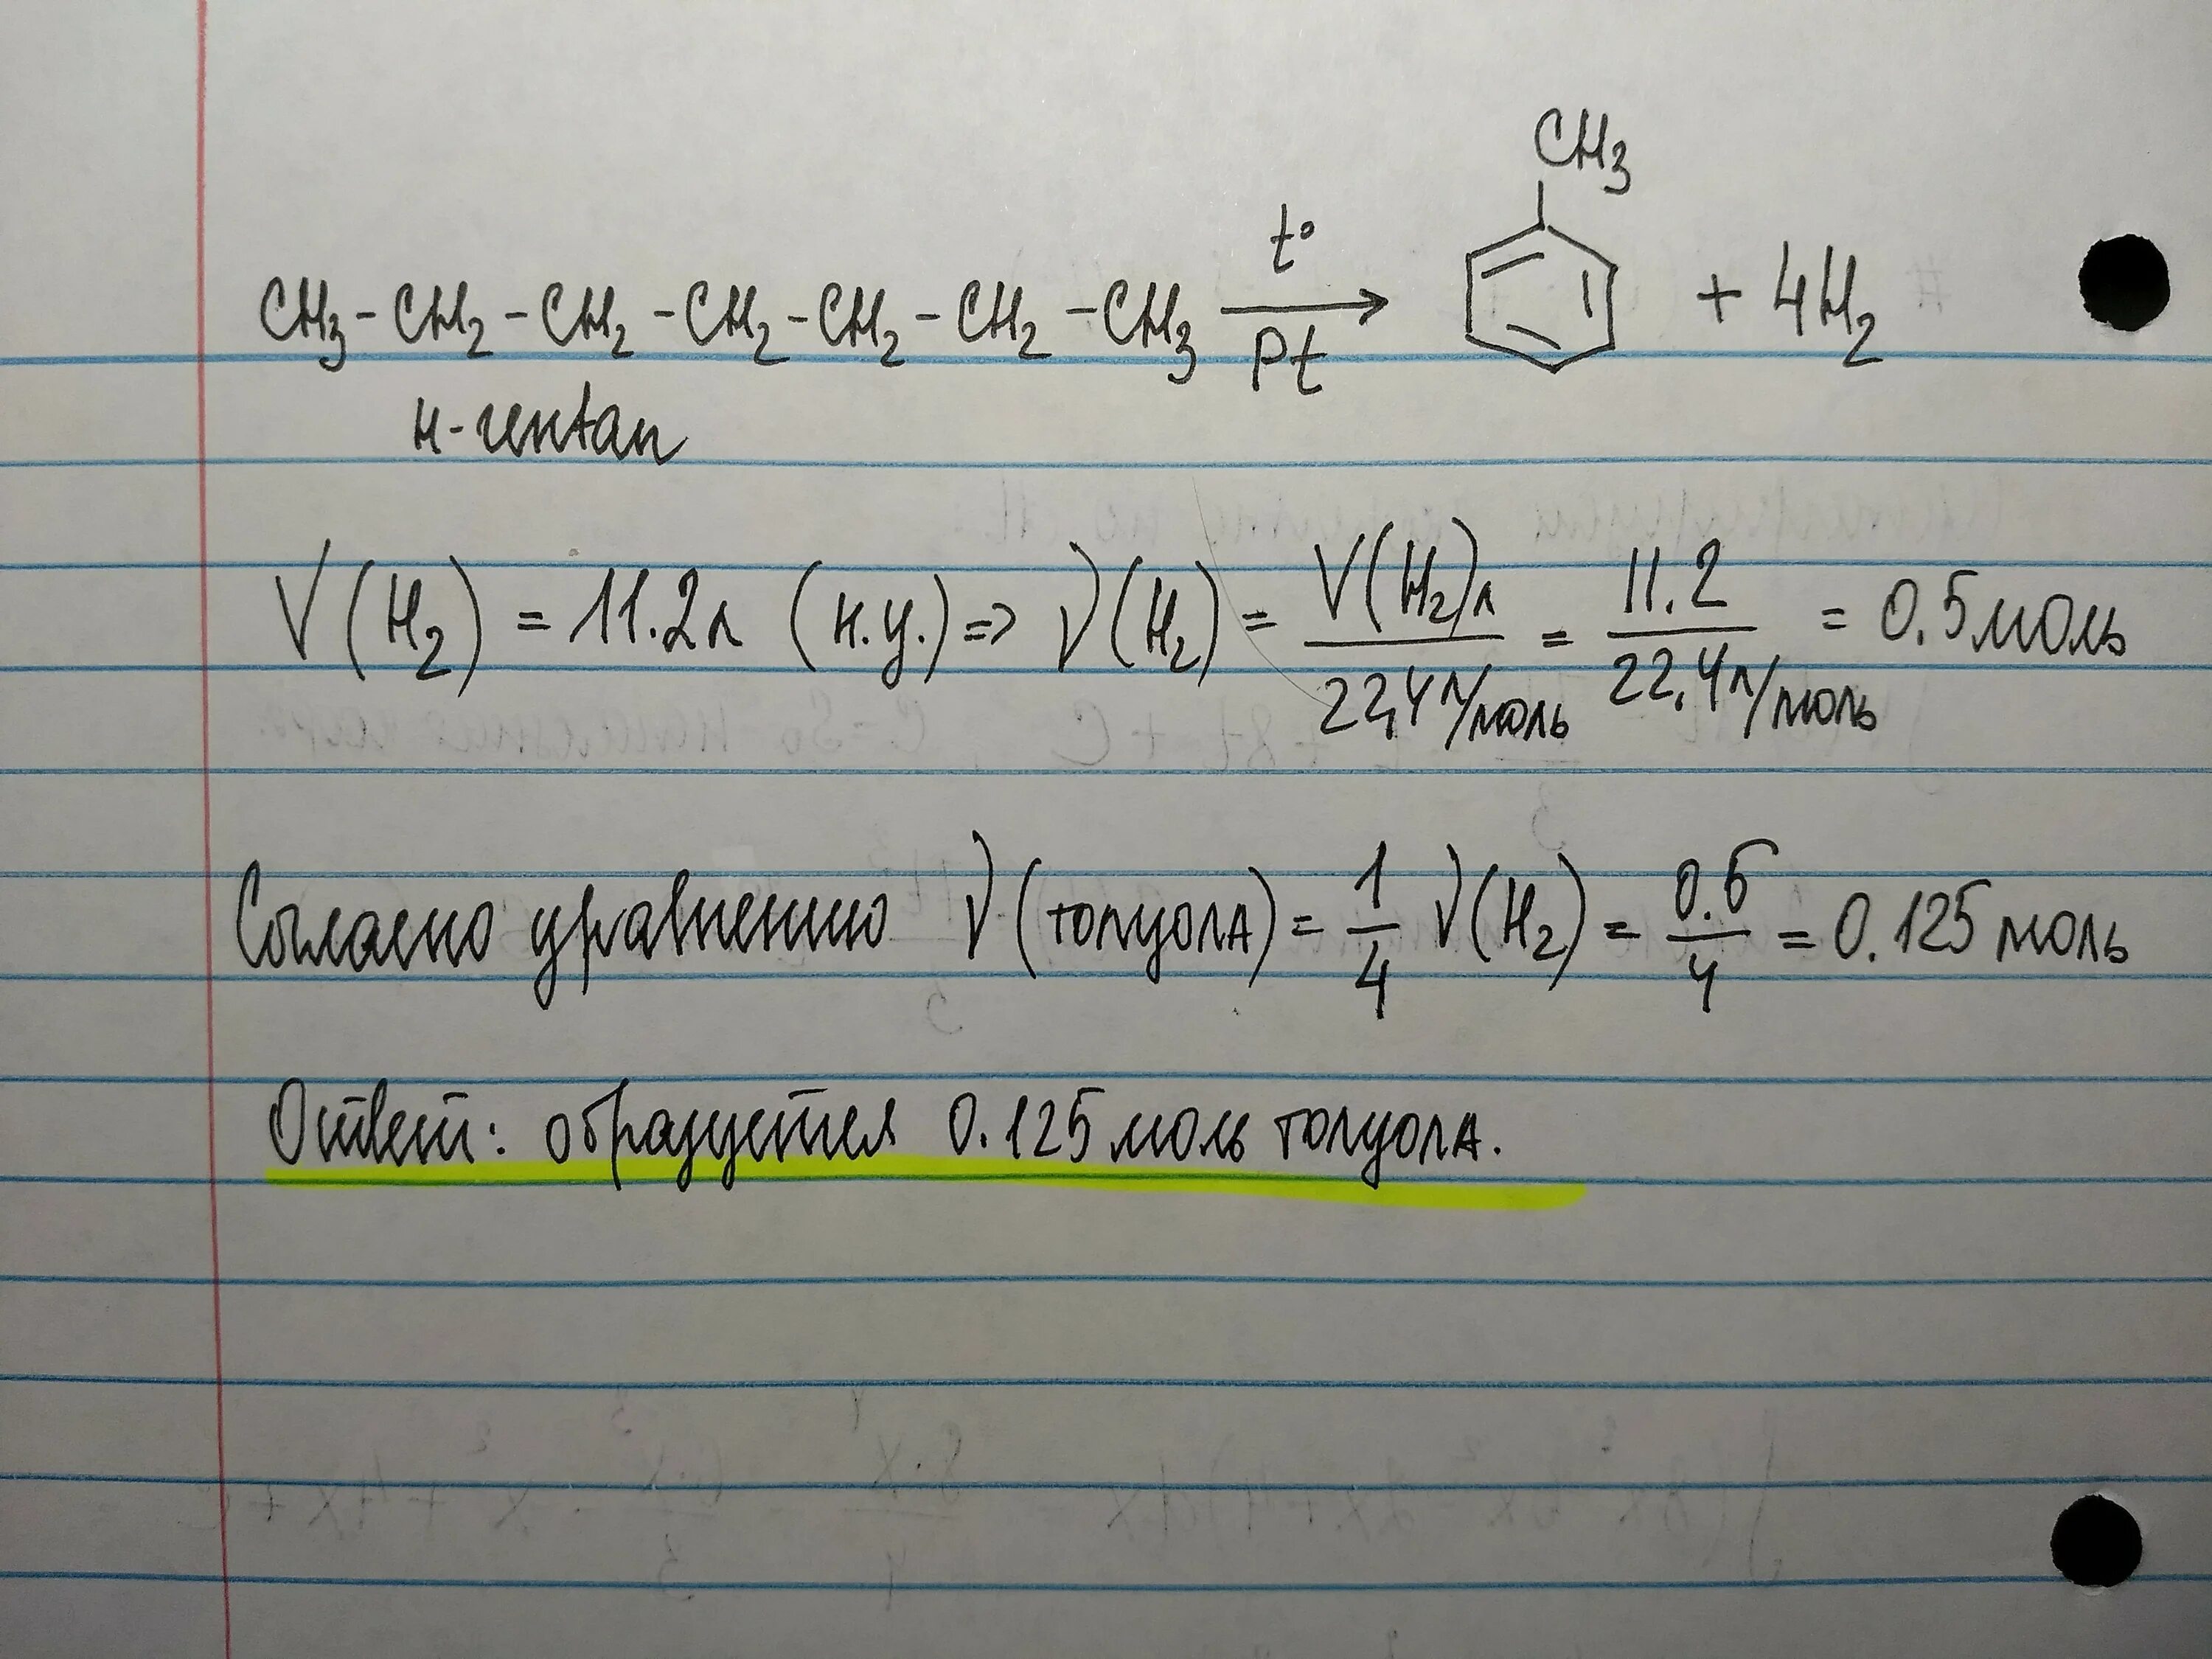 CH₃-CH₂-CH₂-CH₂-CH₂-CH₂-CH₃ t° Pt → CH₃ + 4H₂
н-гептан
V(H₂) = 11.2л (н.у.) => ν(H₂) = V(H₂)л / 22,4л/моль = 11.2 / 22.4л/моль = 0.5моль
Согласно уравнению ν(толуола) = 1/4 ν(H₂) = 0.5/4 = 0.125 моль
Ответ: образуется 0.125 моль толуола.